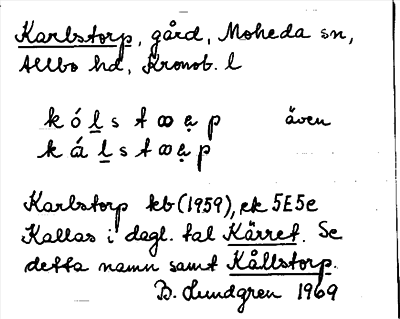 Karlstorp, gård, Moheda sn,
Allbo hd, Kronob. l
k ó l s t ꝏ ạ p även
k á l s t ꝏ ạ p
Karlstorp kb (1959), ek 5E5e
Kallas i dagl. tal Kärret. Se
detta namn samt Kållstorp.
B. Lundgren 1969